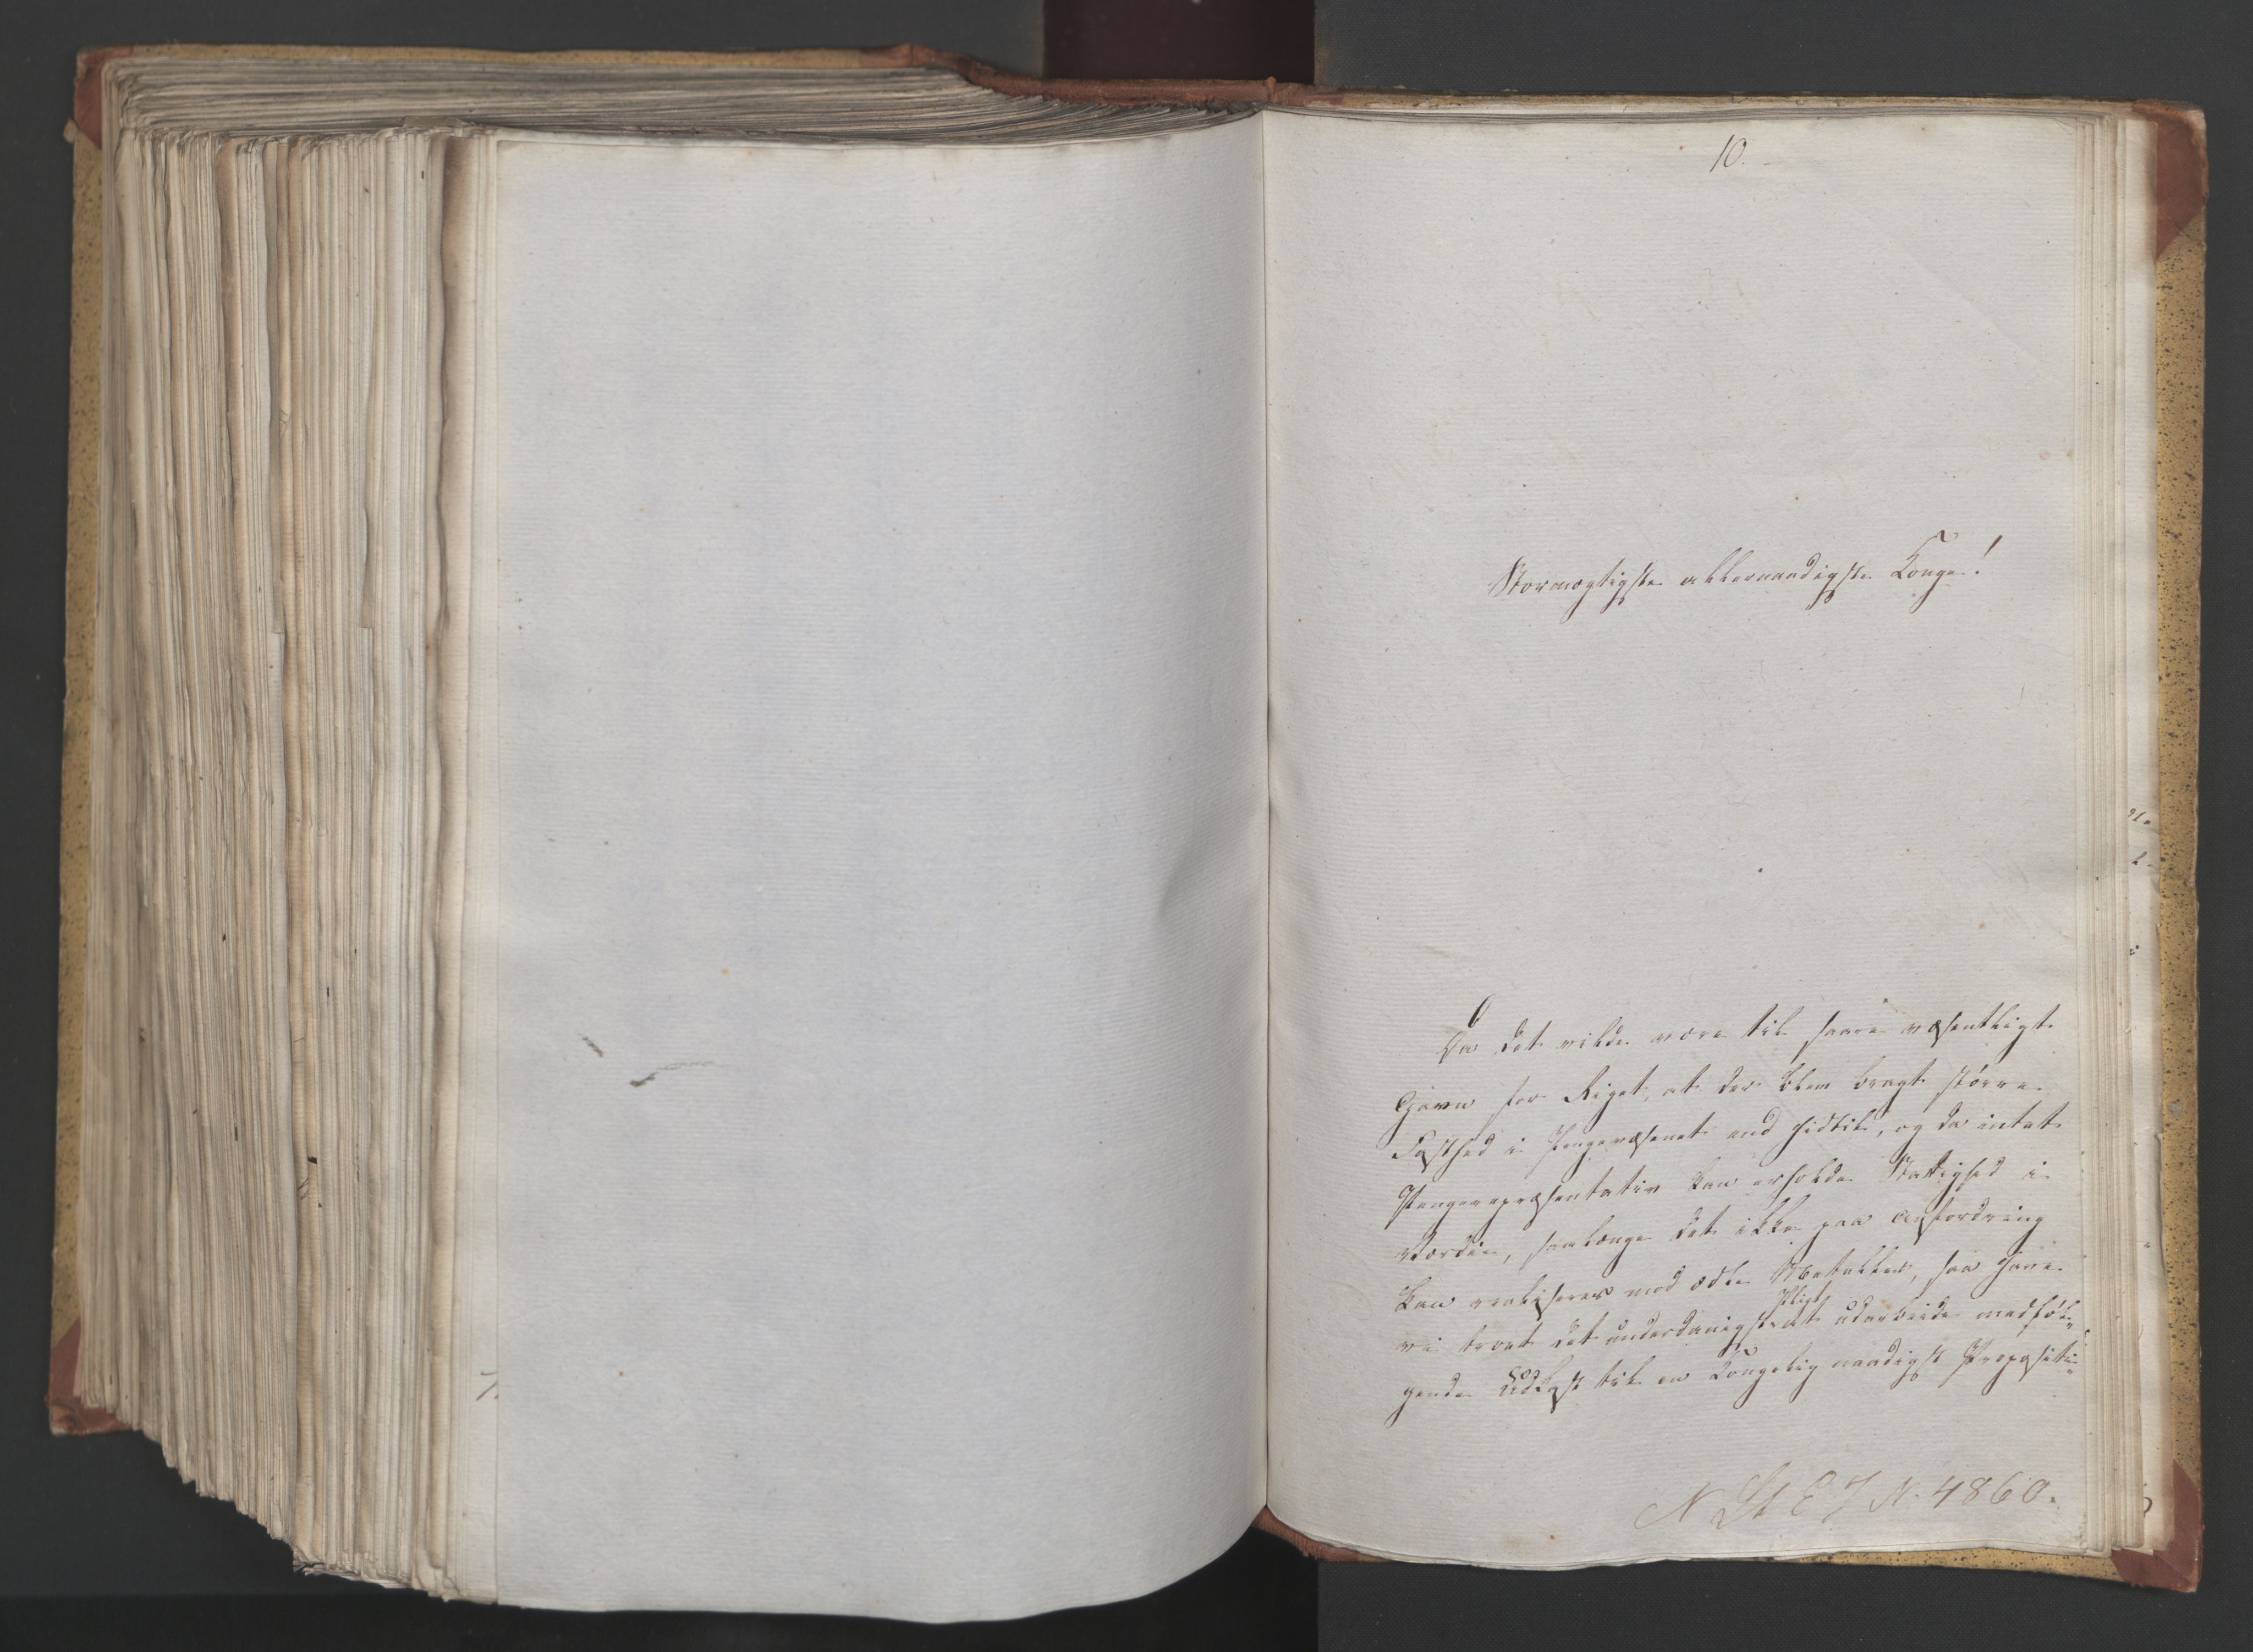 10.
Stormægtigste allernaadigste Konge!
Da det vilde være til saare væsentligt
Gavn for Riget, at der blev bragt større
Fasthed i Pengevæsenet end hidtil, og da intet
Pengerepræsentativ kan erholde Stadighed i
Værdie, saalænge det ikke paa Anfordring
kan realiseres mod ædle Metaller, saa have
vi troet det underdanigst Pligt at udarbeide medføl-
gende Udkast til en Kongelig naadigst Propositi-
N St E J N. 4860.
7.